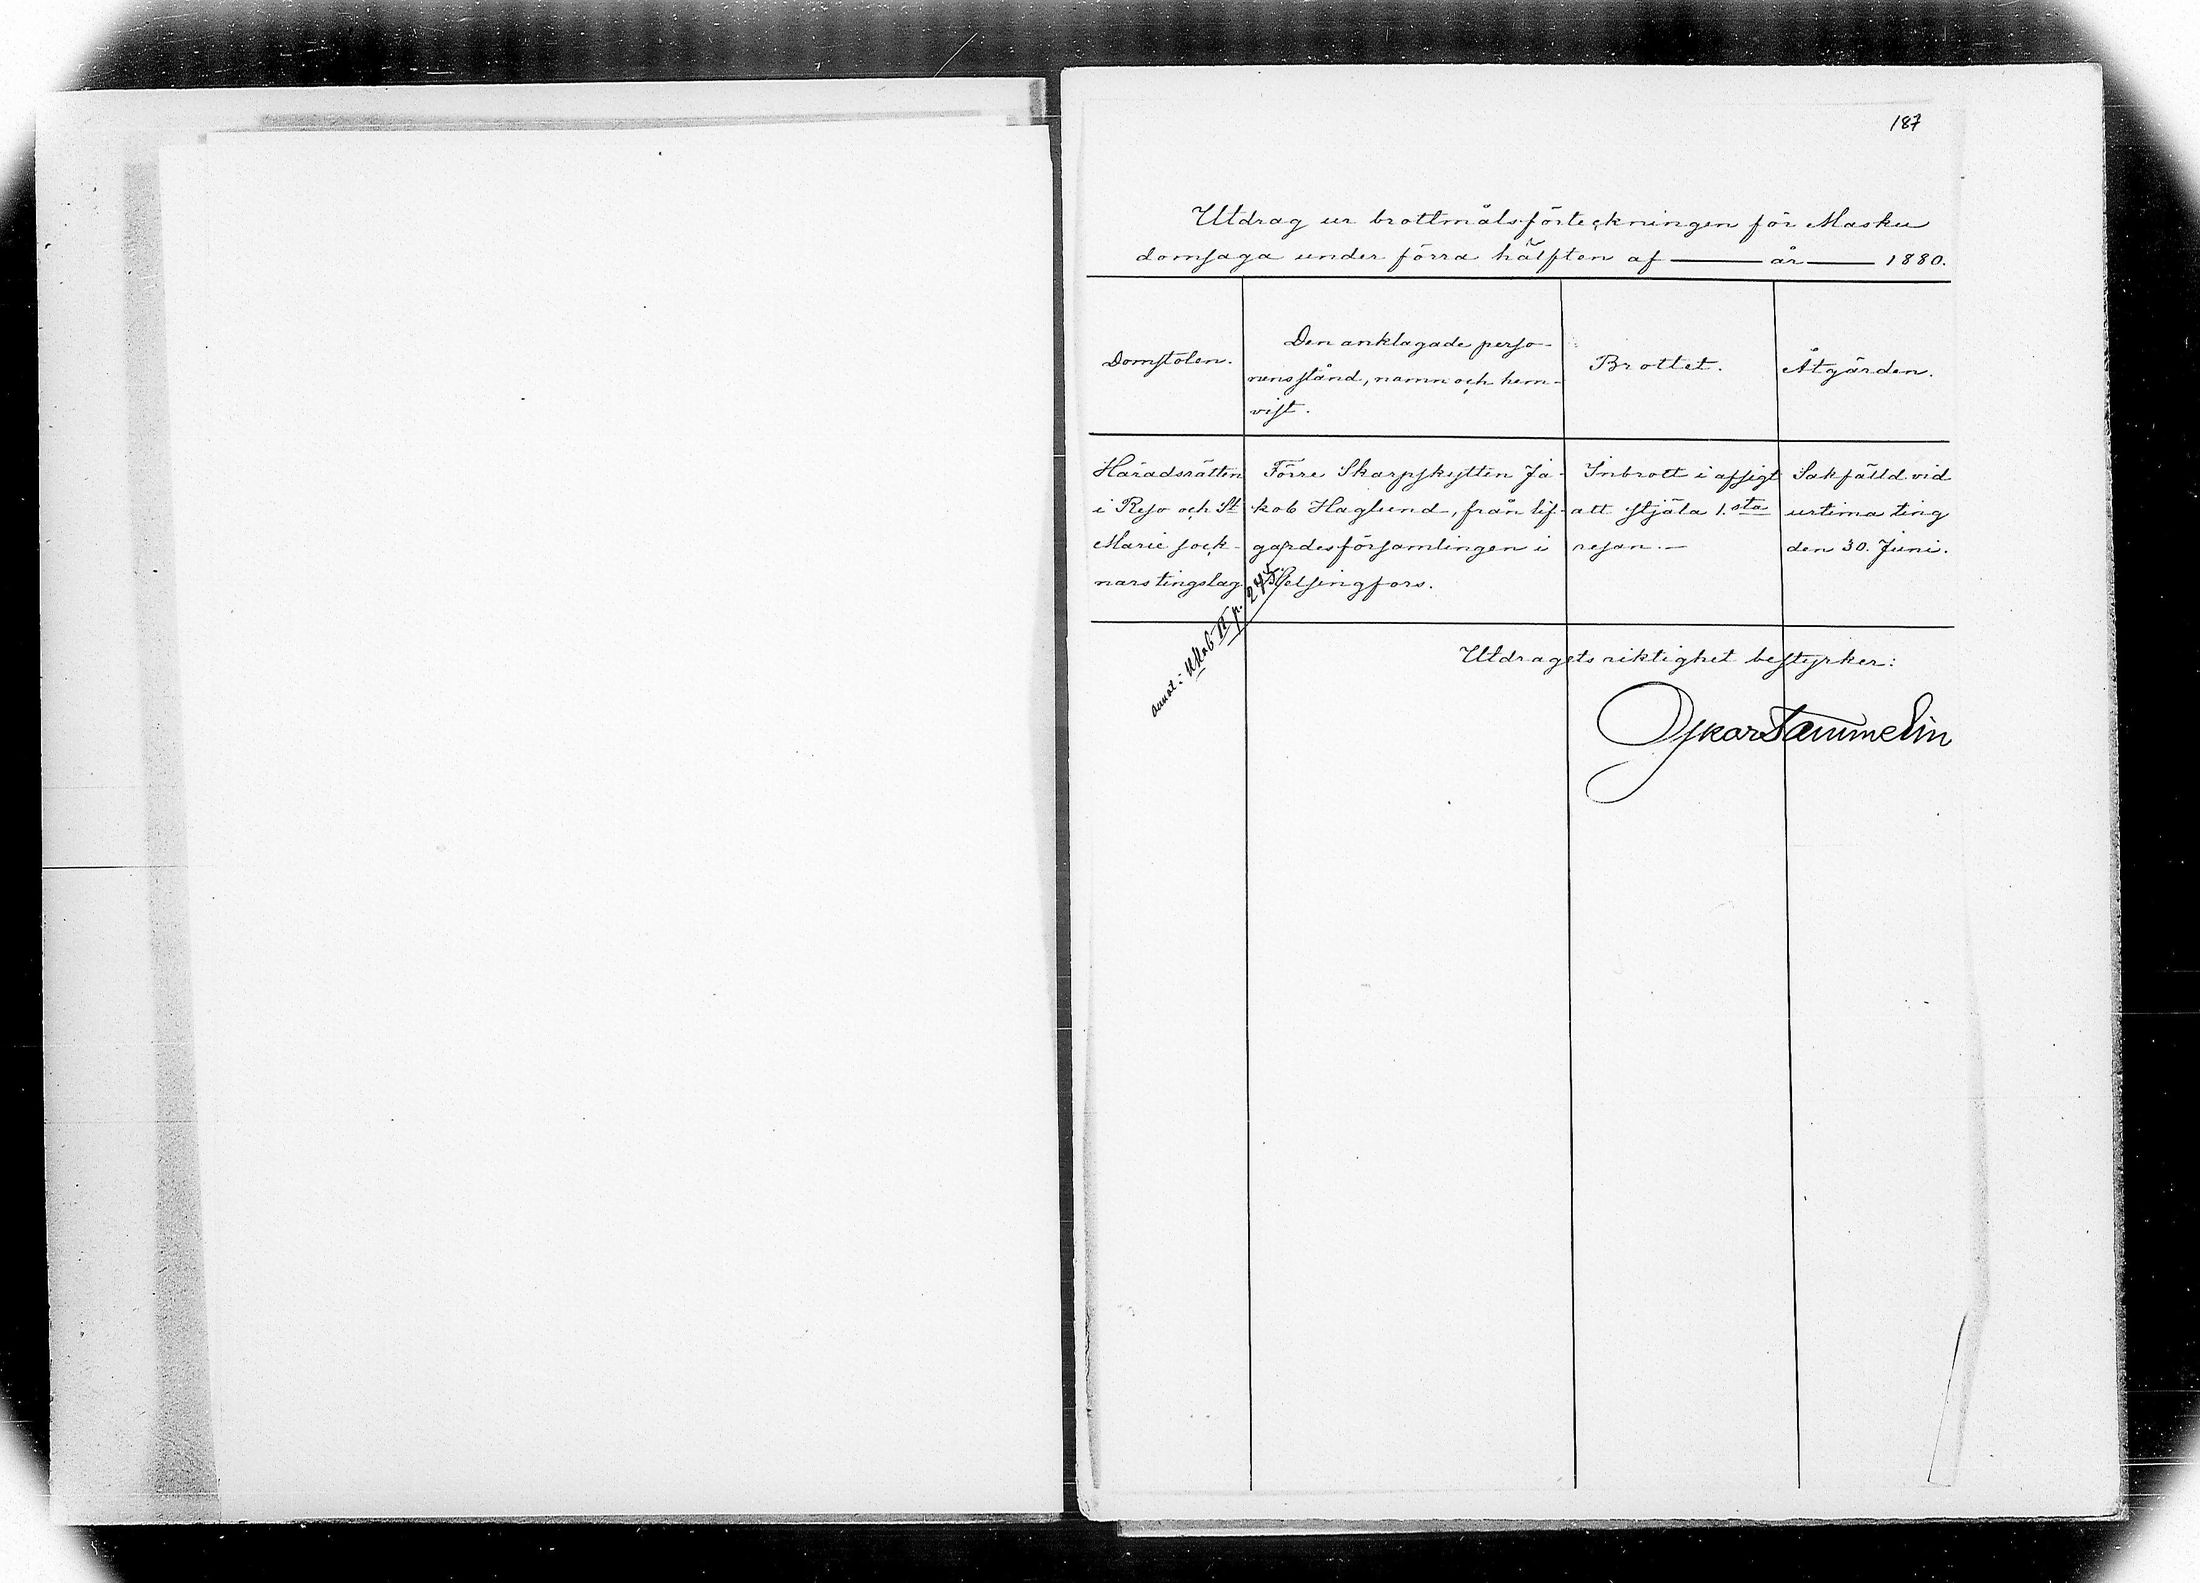 187
Utdrag ur brottmålsförteckningen för Masku
domsaga under förra hälften af — år — 1880.
Domstolen.
Den anklagade perso-
nens stånd, namn och hem-
vist.
Brottet.
Åtgärden.
Häradsrätten
i Reso och St
Marie sock-
nars tingslag
Förre Skarpskytten Ja-
kob Haglund, från lif-
gardesförsamlingen i
Helsingfors.
Inbrott i afsigt
att stjäla 1.sta
resan.—
Sakfälld vid
urtima ting
den 30. Juni.
annot: p. 275.
Utdragets riktighet bestyrker:
Oskar Tammelin